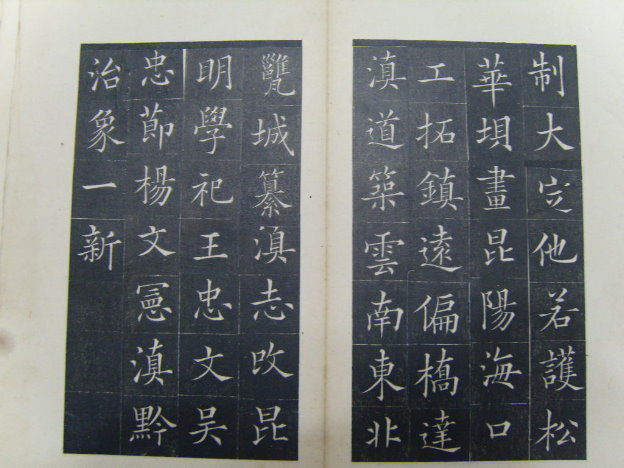 制大定他若護松
華垻畫昆陽海口
工拓鎮遠偏橋達
滇道築雲南東北
甕城纂滇志改昆
明學祀王忠文吴
忠節楊文憲滇黔
治象一新